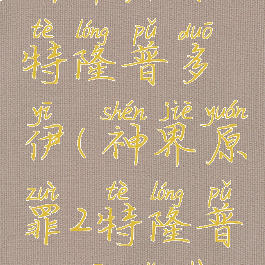 tè lóng pǔ duō
特隆普多
yī shén jiè yuán
伊(神界原
zuì tè lóng pǔ
罪2特隆普